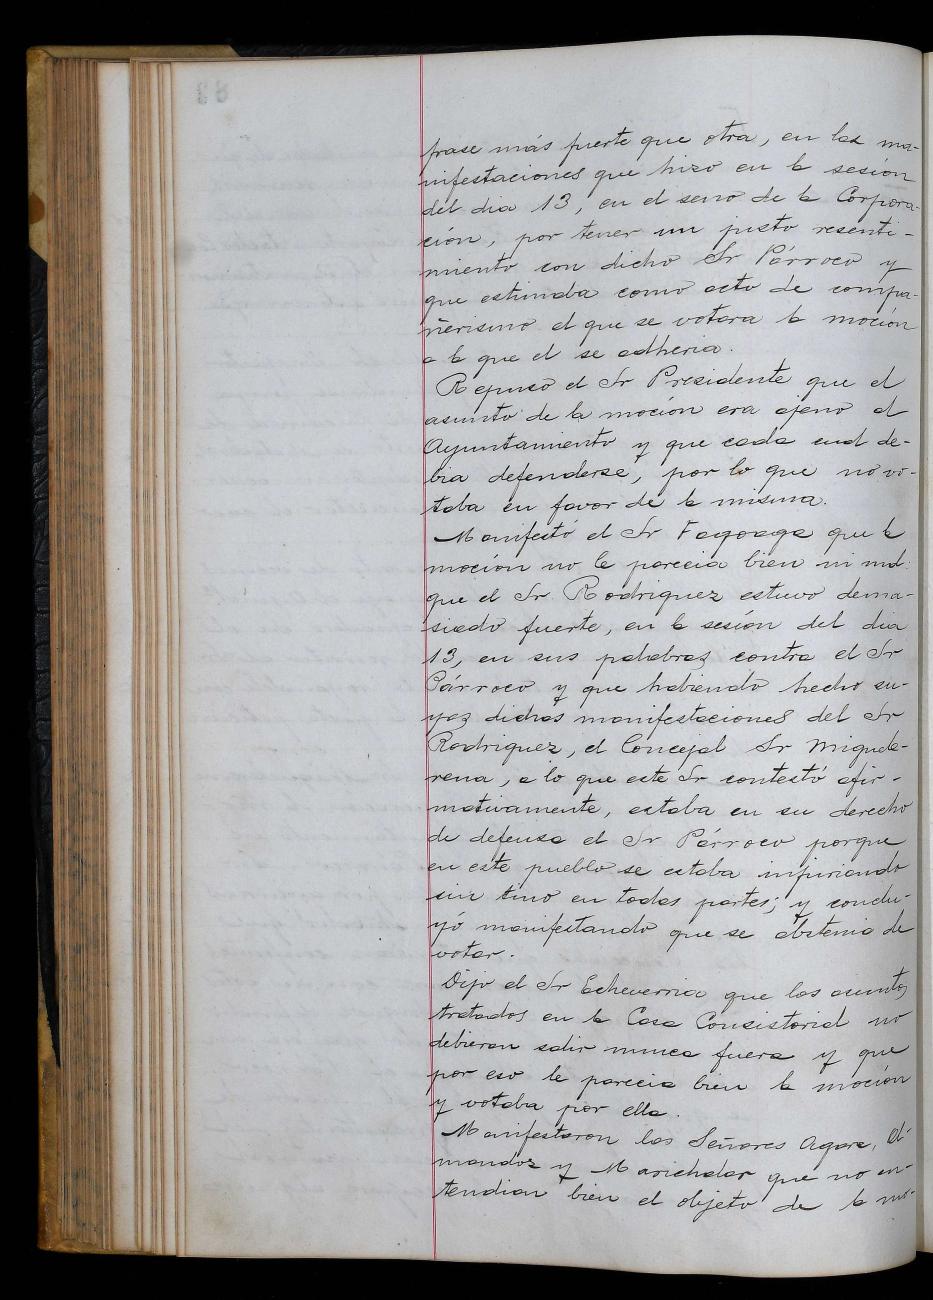 frase más fuerte que otra, en las ma-
nifestaciones que hizo en la sesión
del dia 13, en el seno de la Corpora-
ción, por tener un justo resenti-
miento con dicho Sr Párroco y
que estimaba como acto de compa-
ñerismo el que se votara la moción
a la que el se adheria.
Repuso el Sr Presidente que el
asunto de la moción era ajeno al
Ayuntamiento y que cada cual de-
bia defenderse, por lo que no vo-
taba en favor de la misma.
Manifestó el Sr Fagoaga que la
moción no le parecia bien ni mal:
que el Sr. Rodriguez estuvo dema-
siado fuerte, en la sesión del dia
13, en sus palabras contra el Sr
Párroco y que habiendo hecho su-
yas dichas manifestaciones del Sr
Rodriguez, el Concejal Sr Miguele-
rena, a lo que este Sr contestó afir-
mativamente, estaba en su derecho
de defensa el Sr Párroco porque
en este pueblo se estaba injuriando
sin tino en todas partes; y conclu-
yó manifestando que se abstenia de
votar.
Dijo el Sr Echeverria que los asuntos
tratados en la Casa Consistorial no
debieran salir nunca fuera y que
por eso le parecia bien la moción
y votaba por ella.
Manifestaron los Señores Agara, Al-
mandoz y Marichalar que no en-
tendian bien el objeto de la mo-